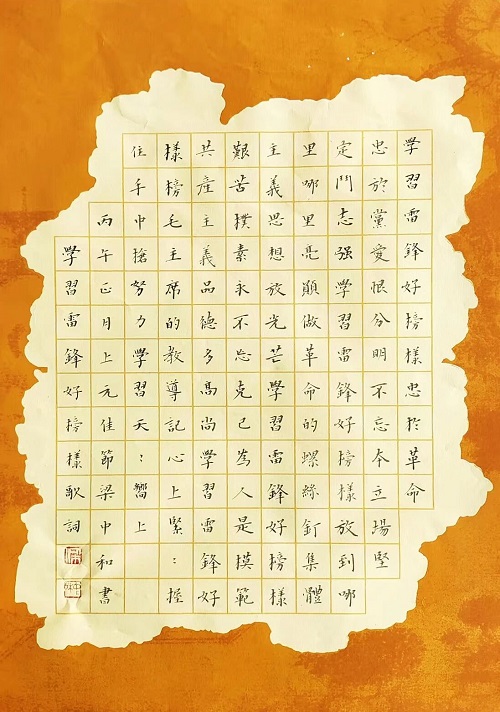 學習雷鋒好榜樣忠於革命
忠於黨愛恨分明不忘本立場堅
定鬥志强學習雷鋒好榜樣放到哪
里哪里亮願做革命的螺絲釘集體
主義思想放光芒學習雷鋒好榜樣
艱苦樸素永不忘克己為人是模範
共產主義品德多高尚學習雷鋒好
樣榜毛主席的教導記心上緊：握
住手中搶努力學習天：嚮上
丙午正月上元佳節梁中和書
學習雷鋒好榜樣歌詞